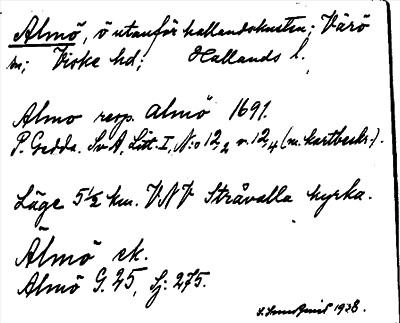 Almö, ö utanför hallandskusten; Värö
sn; Viske hd; Hallands l.
Almo resp. Almö 1691.
P. Gedda. SvA, Litt. I, N:o 12₂ o. 12₄ (m. kartbeskr.).
Läge 5½ km. VNV Stråvalla kyrka.
Älmö ek.
Almö G. 25, Sj: 275.
1928.